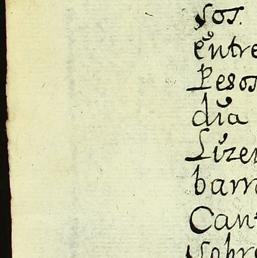 sos.
entre
Pesos
dia
Lizen
barr
Cant
sobre